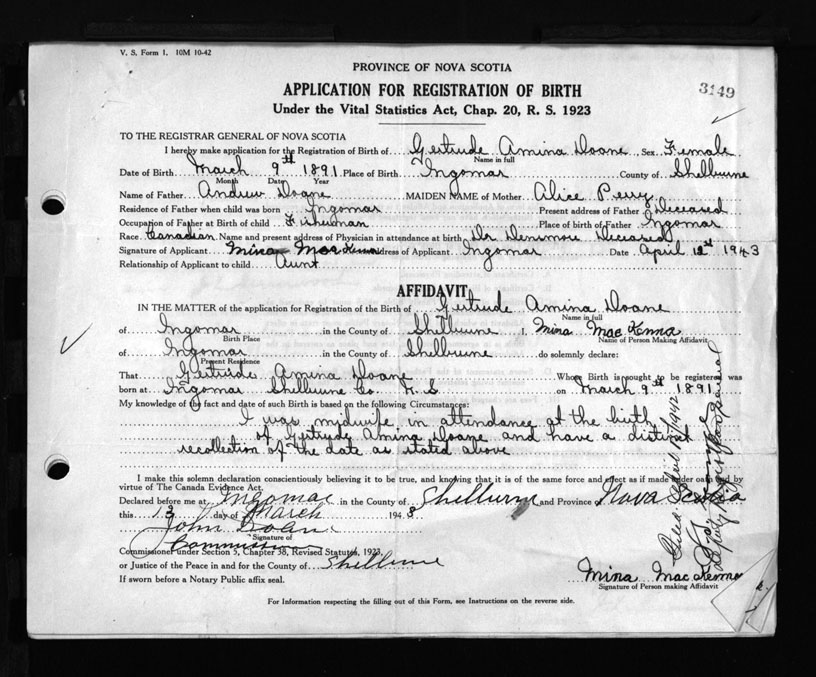 V. S. Form 1. 10M 10-42
PROVINCE OF NOVA SCOTIA
3149
APPLICATION FOR REGISTRATION OF BIRTH
Under the Vital Statistics Act, Chap. 20, R. S. 1923
TO THE REGISTRAR GENERAL OF NOVA SCOTIA
I hereby make application for the Registration of Birth of Gertrude Amina Doane Sex Female
Name in full
Date of Birth March 9th 1891 Place of Birth Ingomar County of Shelburne
Month Date Year
Name of Father Andrew Doane MAIDEN NAME of Mother Alice Perry
Residence of Father when child was born Ingomar Present address of Father Deceased
Occupation of Father at Birth of child Fisherman Place of birth of Father Ingomar
Race Canadian Name and present address of Physician in attendance at birth Dr Densmore Deceased
Signature of Applicant Mina MacKenna Address of Applicant Ingomar Date April 1943
Relationship of Applicant to child Aunt
AFFIDAVIT
IN THE MATTER of the application for Registration of the Birth of Gertrude Amina Doane
Name in full
of Ingomar in the County of Shelburne I, Mina MacKenna
Birth Place Name of Person Making Affidavit
of Ingomar in the County of Shelburne do solemnly declare:
Present Residence
That Gertrude Amina Doane Whose Birth is sought to be registered was
born at Ingomar Shelburne Co N.S. on March 9th 1891
My knowledge of the fact and date of such Birth is based on the following Circumstances:
I was midwife in attendance at the birth
of Gertrude Amina Doane and have a distinct
recollection of the date as stated above
I make this solemn declaration conscientiously believing it to be true, and knowing that it is of the same force and effect as if made under oath and by
virtue of The Canada Evidence Act.
Declared before me at Ingomar in the County of Shelburne and Province of Nova Scotia
this 13 day of March 1943
John Doane
Signature of
Commissioner
Commissioner under Section 5, Chapter 58, Revised Statutes, 1923,
or Justice of the Peace in and for the County of Shelburne
If sworn before a Notary Public affix seal.
Mina MacKenna
Signature of Person making Affidavit
For Information respecting the filling out of this Form, see Instructions on the reverse side.